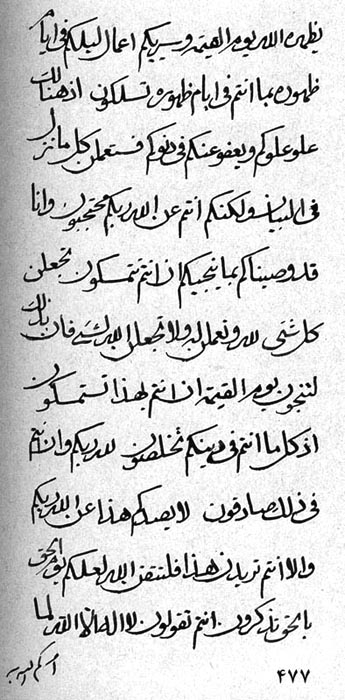 يظهره الله يوم القيمة وسيريكم اعمال ليلكم في ايام
ظهوره بما انتم في ايام ظهوره تسلكون اذ هنالك
علو علوكم ويعفو عنكم في دنوكم فستعملن كل ما نزل
في البيان ولكنكم انتم عن الله ربكم محتجبون وانا
قد وصيناكم بما ينجيكم ان انتم تتمسكون تجعلن
كل شئ لله وتعملن لله ولا تجعلن الله لشئ فان بذلك
لتنجون يوم القيمة ان انتم بهذا تستمسكون
اذ كل ما انتم في دينكم تخلصون لله ربكم وان انتم
في ذلك صادقون لا يصدكم هذا عن الله ربكم
والا انتم تريدن هذا فلتتقن الله لعلكم يوم الحق
بالحق تذكرون انتم تقولون لا اله الا الله لما
٤٧٧